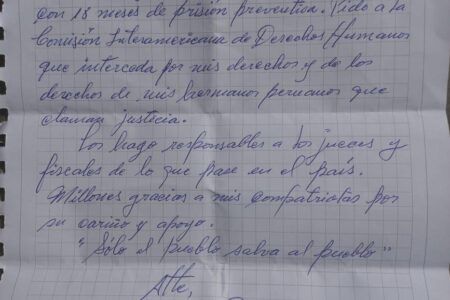 con 18 meses de prisión preventiva. Pido a la
Comisión Interamericana de Derechos Humanos
que interceda por mis derechos y de los
derechos de mis hermanos peruanos que
claman justicia.
Los hago responsables a los jueces y
fiscales de lo que pase en el país.
Millones gracias a mis compatriotas por
su cariño y apoyo.
"Sólo el pueblo salva al pueblo"
Atte,